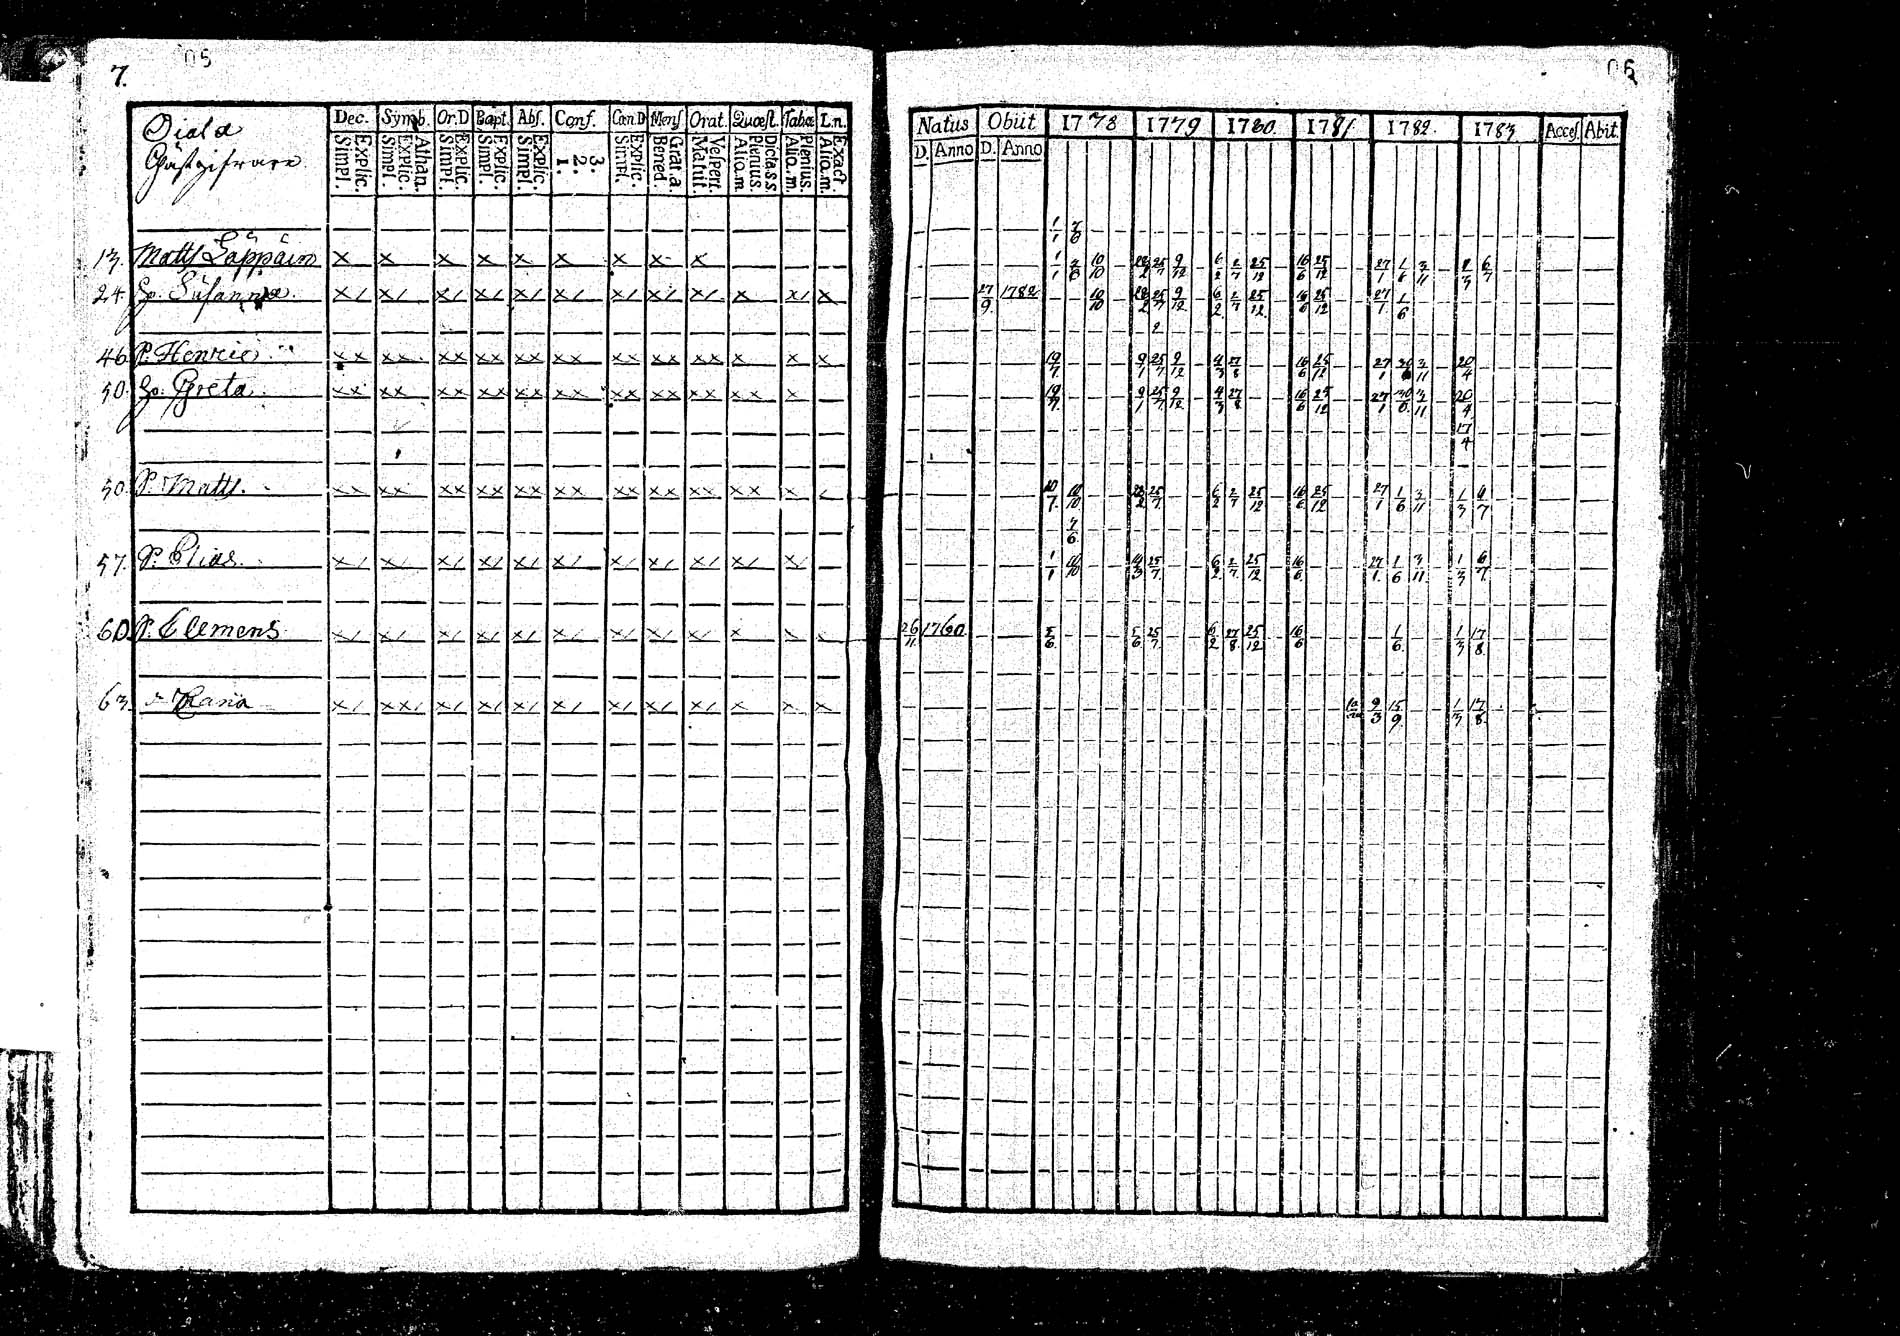 7.
05
Oiala
Gästgifvare
Dec. Symb. Or.D Bapt. Abs. Conf. Cœn.D Mens Orat. Quæst. Tabæ L.n.
Explic. Simpl. Athan. Explic. Simpl. Explic. Simpl. Explic. Simpl. Explic. Simpl. 3. 2. 1. Explic. Simpl. Grat.a. Bened. Vespert. Matut. Dicta.s.s. Plenius. Aliq.m. Plenius. Aliq.m. Exact. Aliq.m.
13. Matts Läppäin x x x x x x x x x
24. Susanna x/ x/ x/ x/ x/ x/ x/ x/ x/ x x/ x
46 P. Henric xx xx xx xx xx xx xx xx xx x x x
50. Greta xx xx xx xx xx xx xx xx xx xx x
50 P. Matts. xx xx xx xx xx xx xx xx xx xx x
57. P. Elias x/ x/ x/ x/ x/ x/ x/ x/ x/ x/ x/
60. P. Clemens x/ x/ x/ x/ x/ x/ x/ x/ x/ x x
63. Maria x/ xx/ x/ x/ x/ x/ x/ x/ x/ x x x
06
Natus Obiit 1778 1779 1780 1781 1782. 1783 Acces. Abit
D. Anno D. Anno
1/1 7/6
10/10 28/2 25/7 9/12 6/2 2/7 25/12 16/6 25/12 27/1 1/6 3/11 6/7
27/9 1782 10/10 28/2 25/7 9/12 6/2 2/7 25/12 16/6 25/12 27/1 1/6
19/7 9/1 25/7 9/12 4/3 27/8 16/6 25/12 27/1 3/11 20/4
19/7 9/1 25/7 9/12 4/3 27/8 16/6 25/12 27/1 30/6 3/11 20/4
17/4
10/10 28/2 25/7 6/2 2/7 25/12 16/6 25/12 27/1 1/6 3/11 1/3
7/6
1/1 10/10 14/3 25/7 6/2 2/7 25/12 16/6 27/1 1/6 3/11 1/3 6/7
26/11 1760 5/6 25/7 6/2 27/8 25/12 16/6 1/6 1/3 17/8
9/3 15/9 1/3 17/8